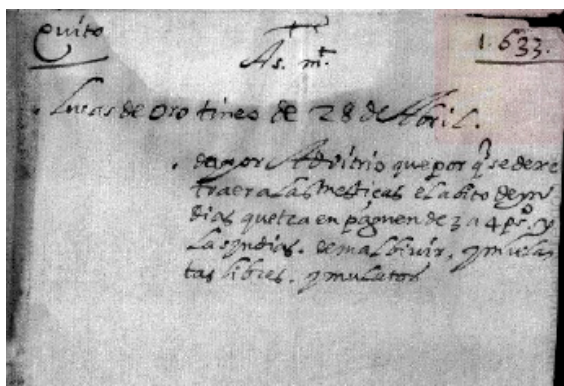 Quito
1.633.
A s. m^t.
Lucas de Oro tineo de 28 de Abril.
da por Advitrio que por q̃ se de re
traer a las mesticas el abito de yn
dias que traen paguen de 3 a 4 p^s. y
las yndias. de mal biuir. y mula
tas libres. y mulatos